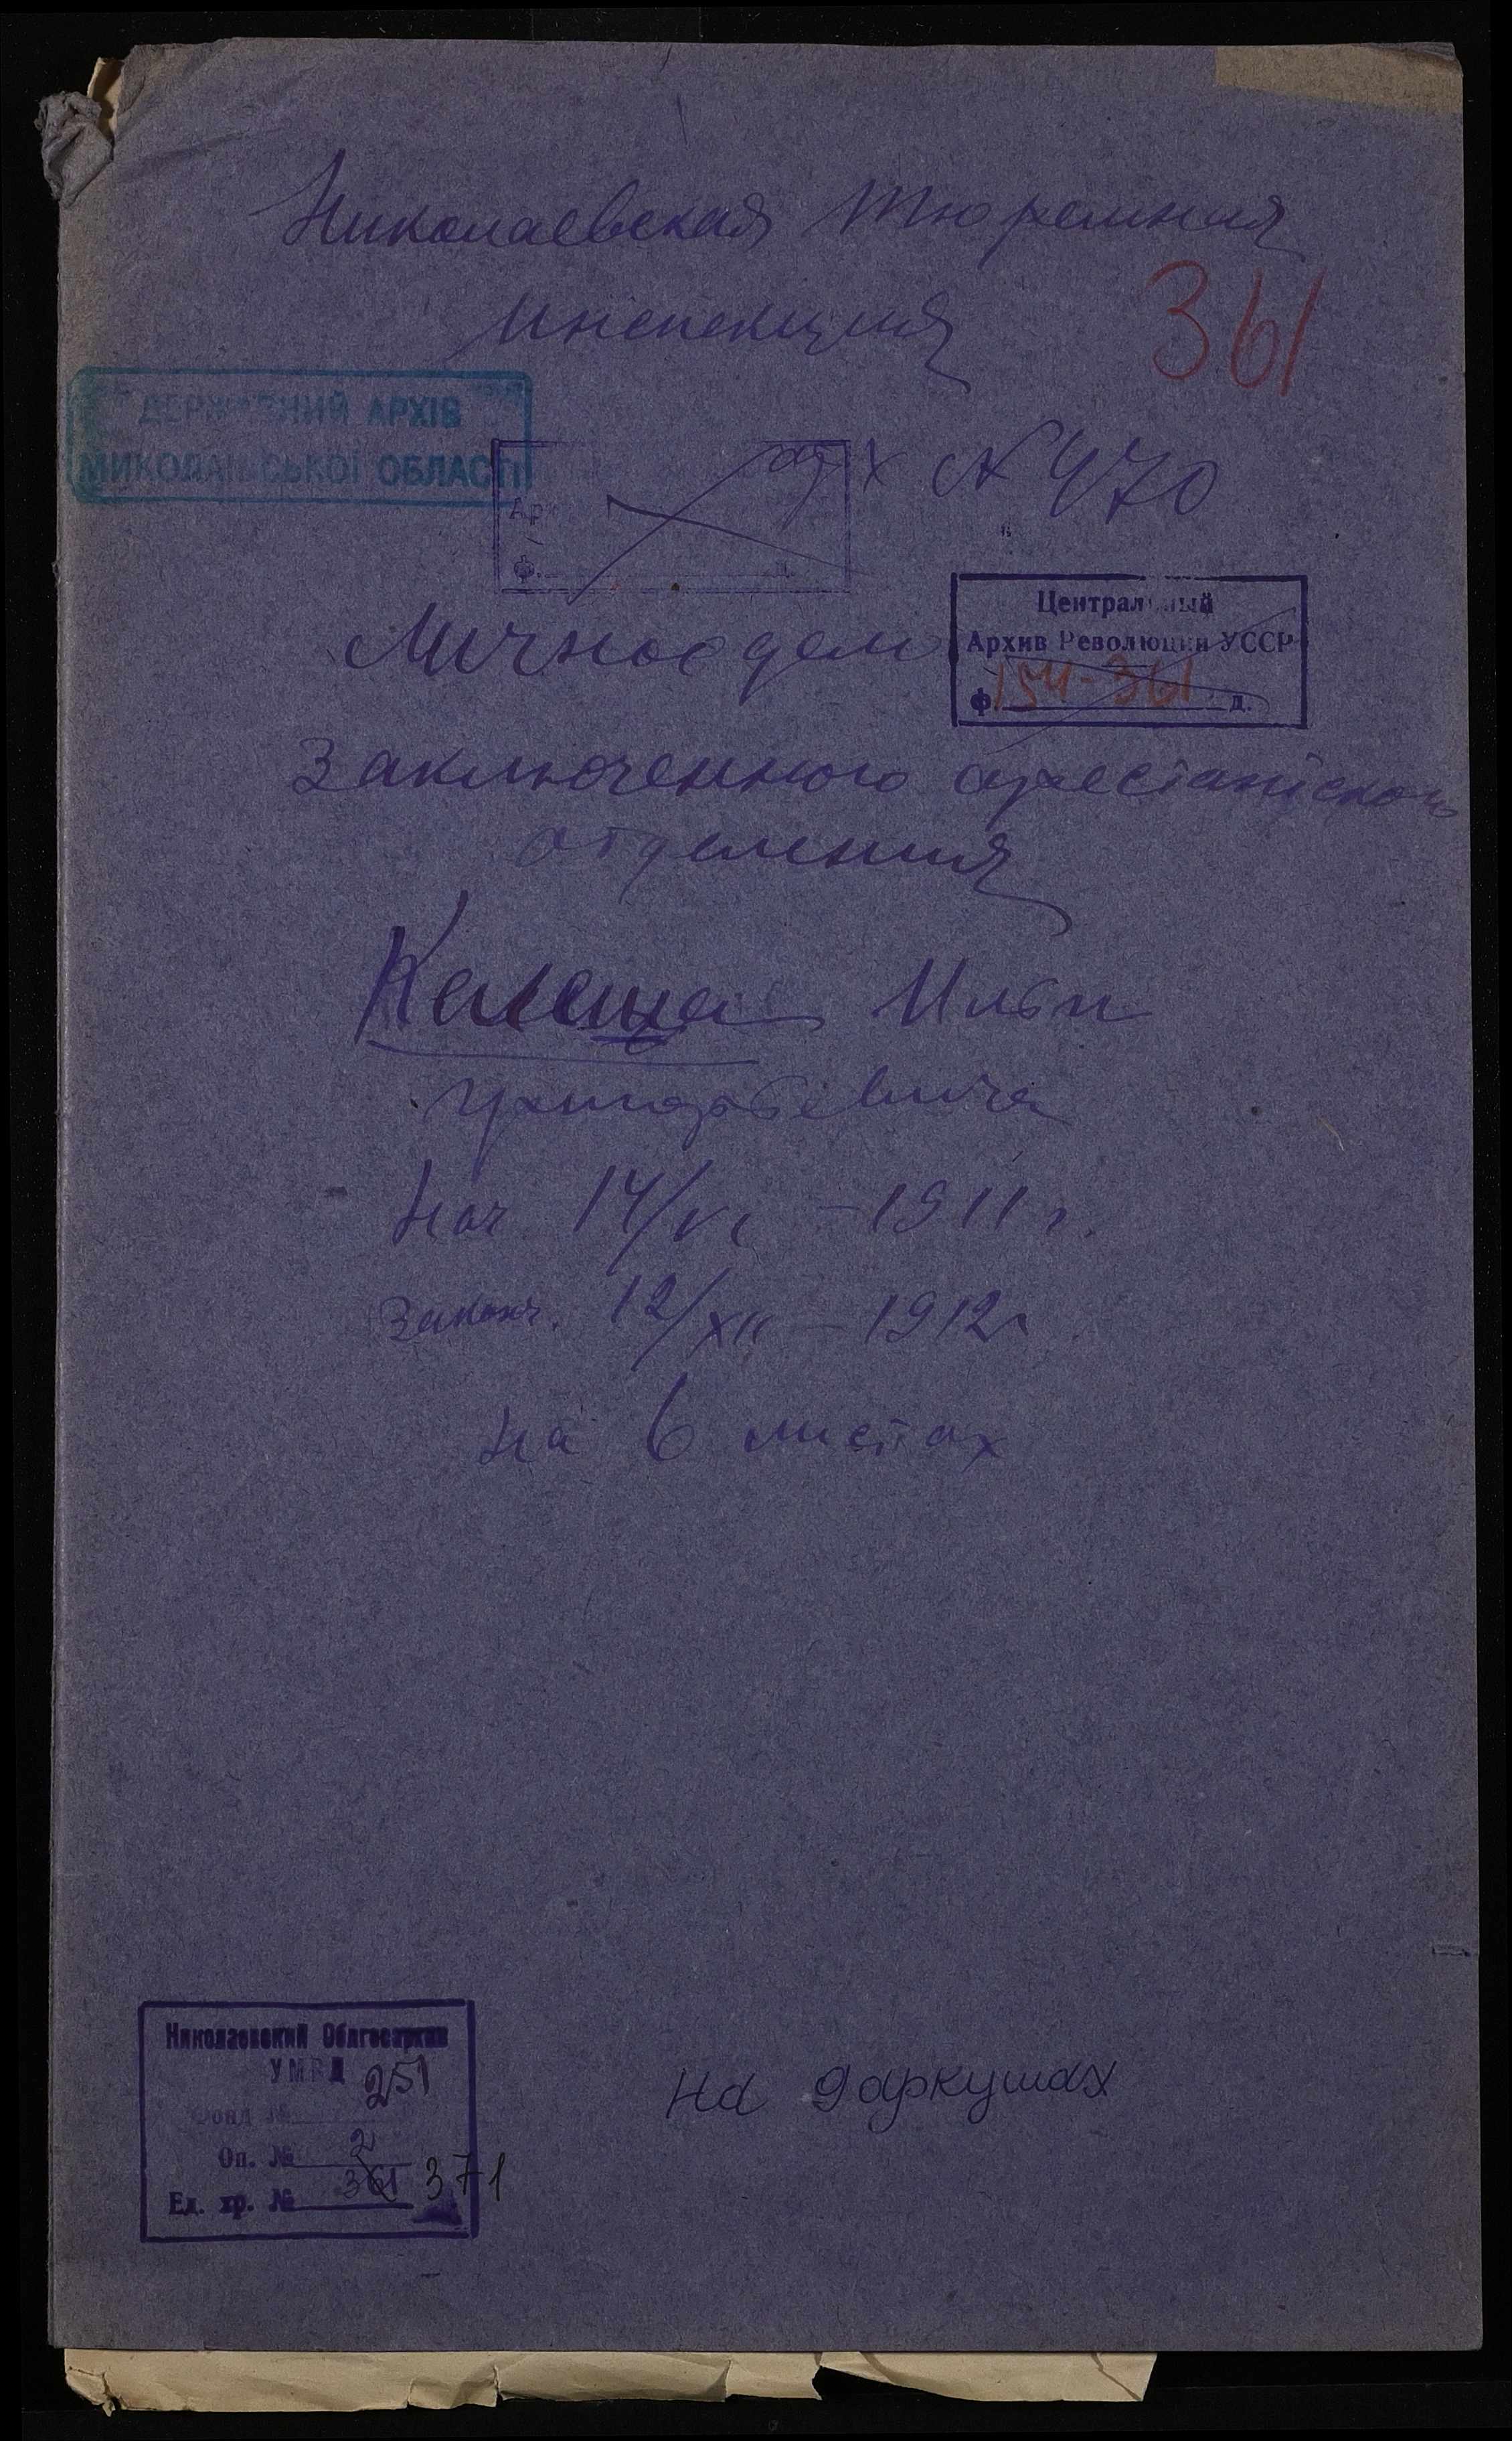 Николаевская тюремная
инспекция
361
ДЕРЖАВНИЙ АРХІВ
МИКОЛАЇВСЬКОЇ ОБЛАСТІ
Ар
ф.
д.
№ 470
Центральный
Архив Революции УССР
ф. 154-361 д.
Личное дело
заключенного арестантского
отделения
Ильи
нач 14/VI - 1911 г.
законч. 12/XII - 1912г
на 6 листах
Николаевский Облгосархив
УМВД
Фонд № 251
Оп. № 2
Ед. хр. № 361 371
на 9 аркушах